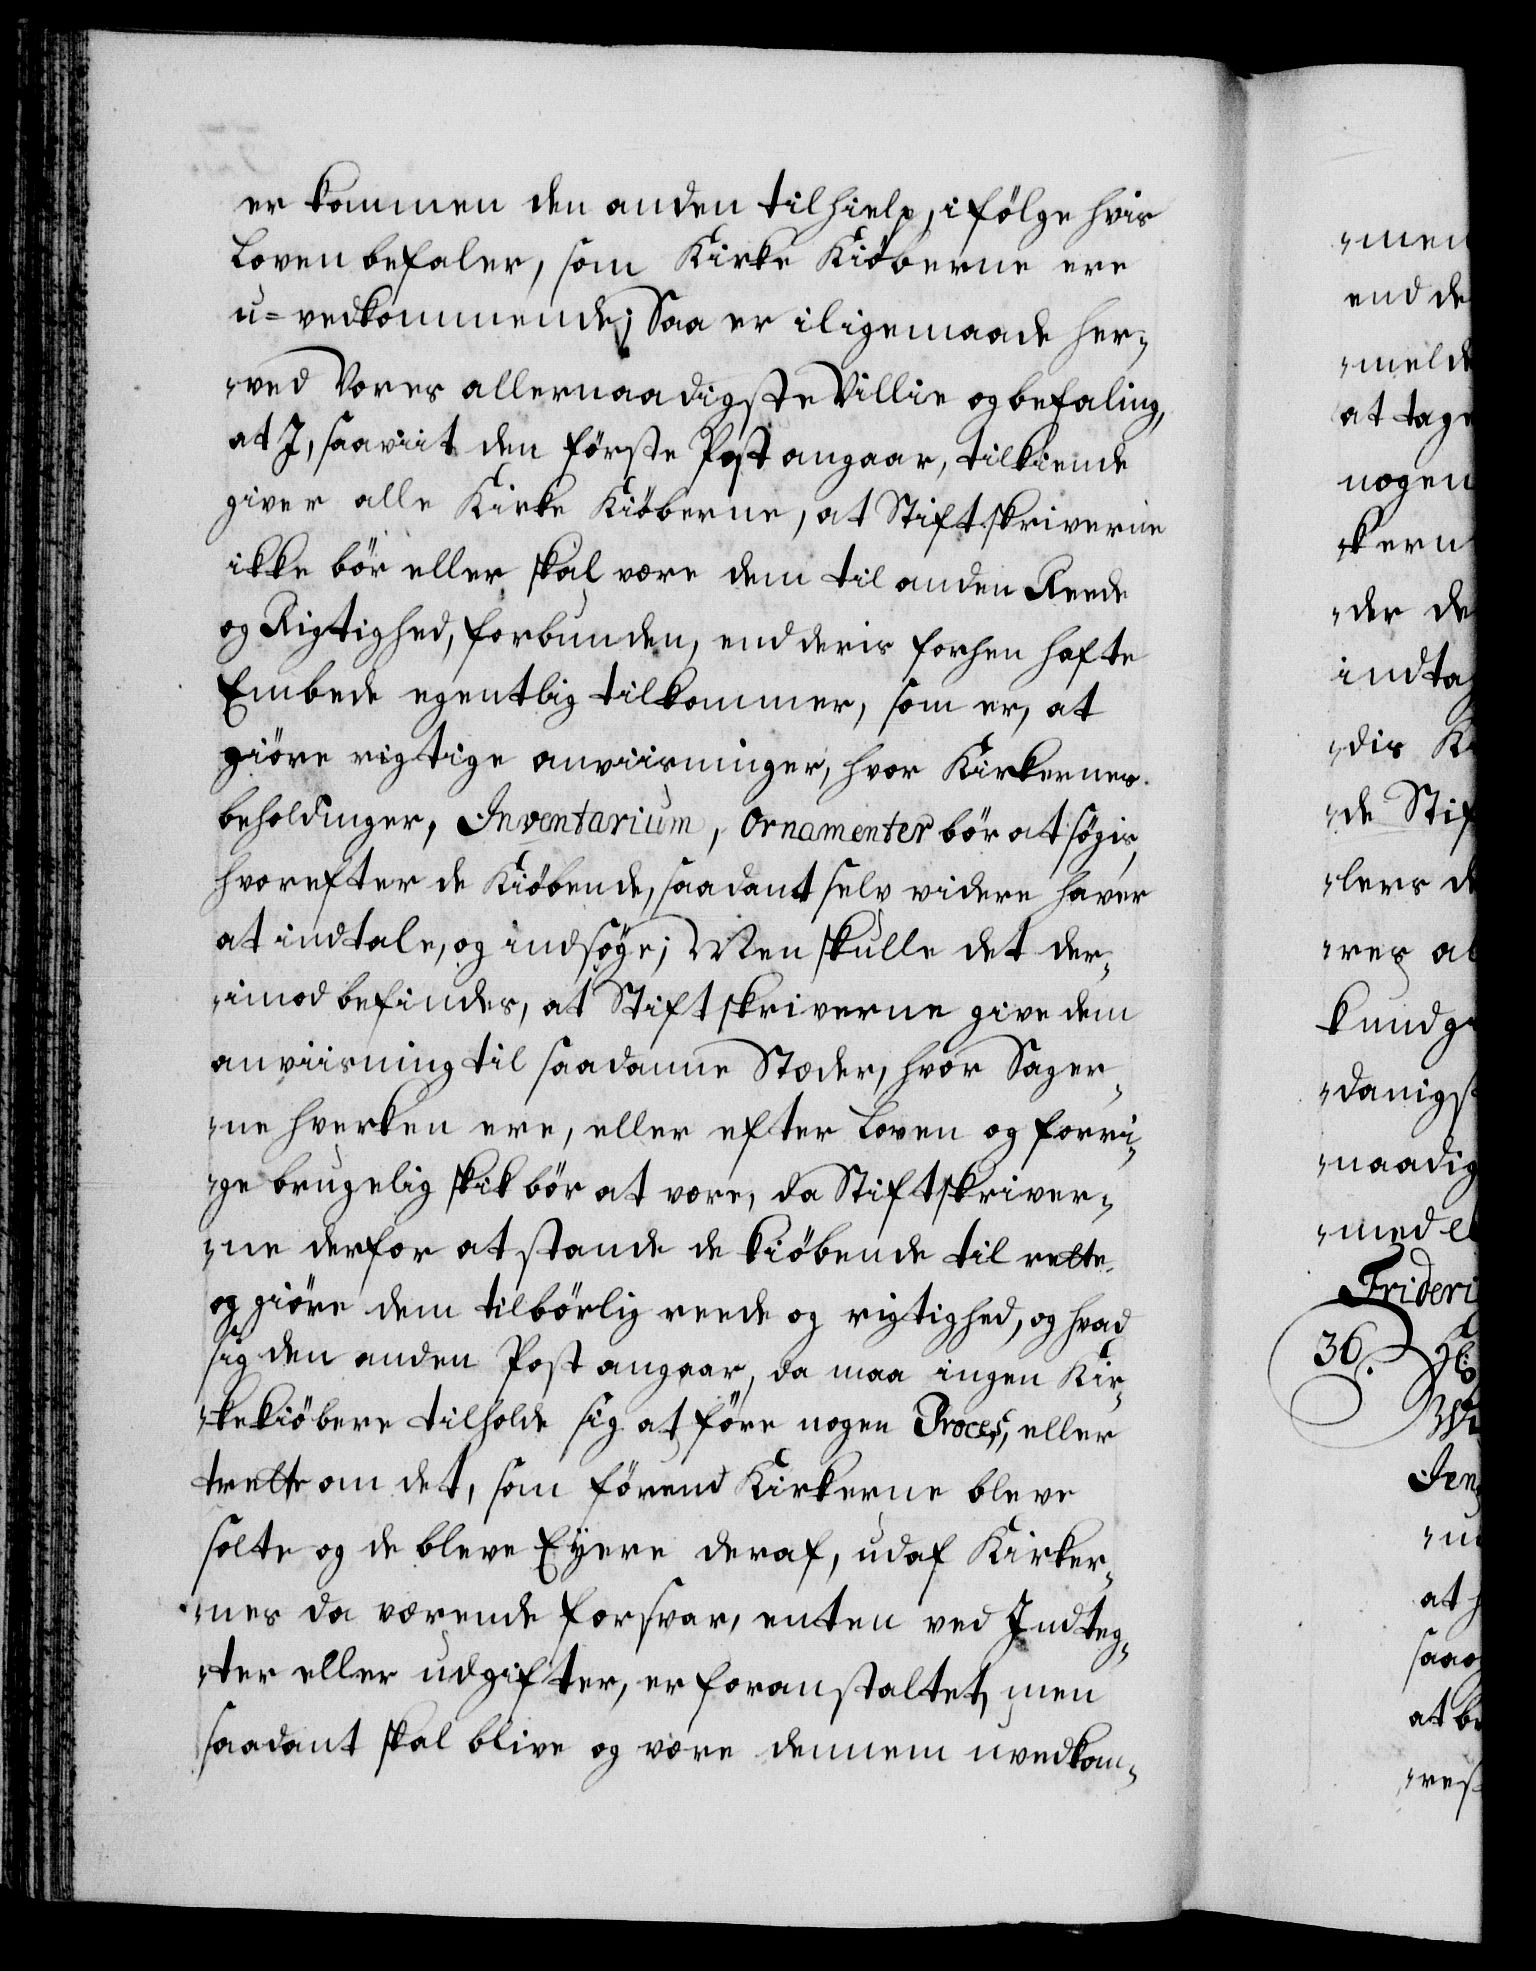 er kommen den anden til hielp, i fölge hvis
Loven befaler, som Kirke Kiöberne ere
u=vedkommende; Saa er iligemaade her„
„ved Vores allernaadigste Villie og befaling,
at J, saaviit den förste Post angaar, tilkiende
giver alle Kirke Kiöberne, at Stiftskriverne
ikke bör eller skal være dem til anden Reede
og Rigtighed, forbunden, end deris forhen hafte
Embede egentlig tilkommer, som er, at
giöre rigtige anviisninger, hvor Kirkernes
beholdinger, Inventarium, Ornamenter bör at søgis,
hvorefter de Kiöbende, saadant selv videre haver
at indtale, og indsøge; Men skulle det der„
„imod befindes, at Stiftskriverne give dem
anviisning til saadanne Stæder, hvor Sager„
„ne hverken ere, eller efter Loven og forri„
„ge brugelig skik bör at være, da Stiftskriver„
„ne derfor at stande de kiöbende til rette
og giöre dem tilbörlig reede og rigtighed, og hvad
sig den anden Post angaar, da maa ingen Kir„
„kekiöbere tilholde sig at före nogen Proces, eller
trætte om det, som förend Kirkerne bleve
solte og de bleve Eyere deraf, udaf Kirker„
„nes da værende forsvar, enten ved Indteg„
„ter eller udgifter, er foranstaltet, men
saadant skal blive og være dennem uvedkom„
„men
end de
„meld
at tage
nogen
„kern
„der de
indta
„dis K
„de Stif
„lers d
„res al
kundg
„danigs
„naadig
„med el
Frideri
36.
Jen
at h
saa
at be
„res